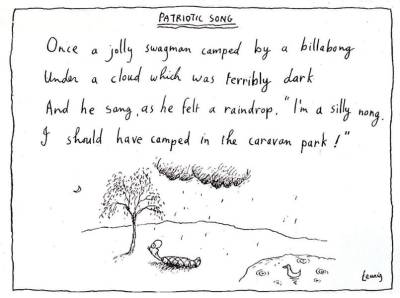 PATRIOTIC SONG
Once a jolly swagman camped by a billabong
Under a cloud which was terribly dark
And he sang, as he felt a raindrop, "I'm a silly nong.
I should have camped in the caravan park!"
Leunig